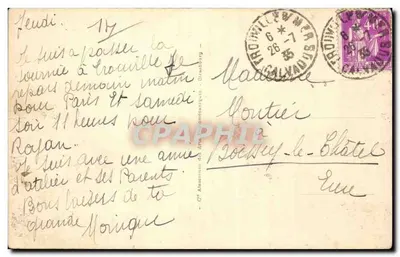 Jeudi.
17
Je suis à passer la
journée à Trouville je
repars demain matin
pour Paris et samedi
soir 11 heures pour
Royan.
Je suis avec une amie
d'atelier et ses Parents.
Bons baisers de ta
grande Monique
TROUVILLE S/ MER
6 *
26 -7
35
CALVADOS
Madame
Montier
à
Boissey-le-Châtel
Eure
CARTES